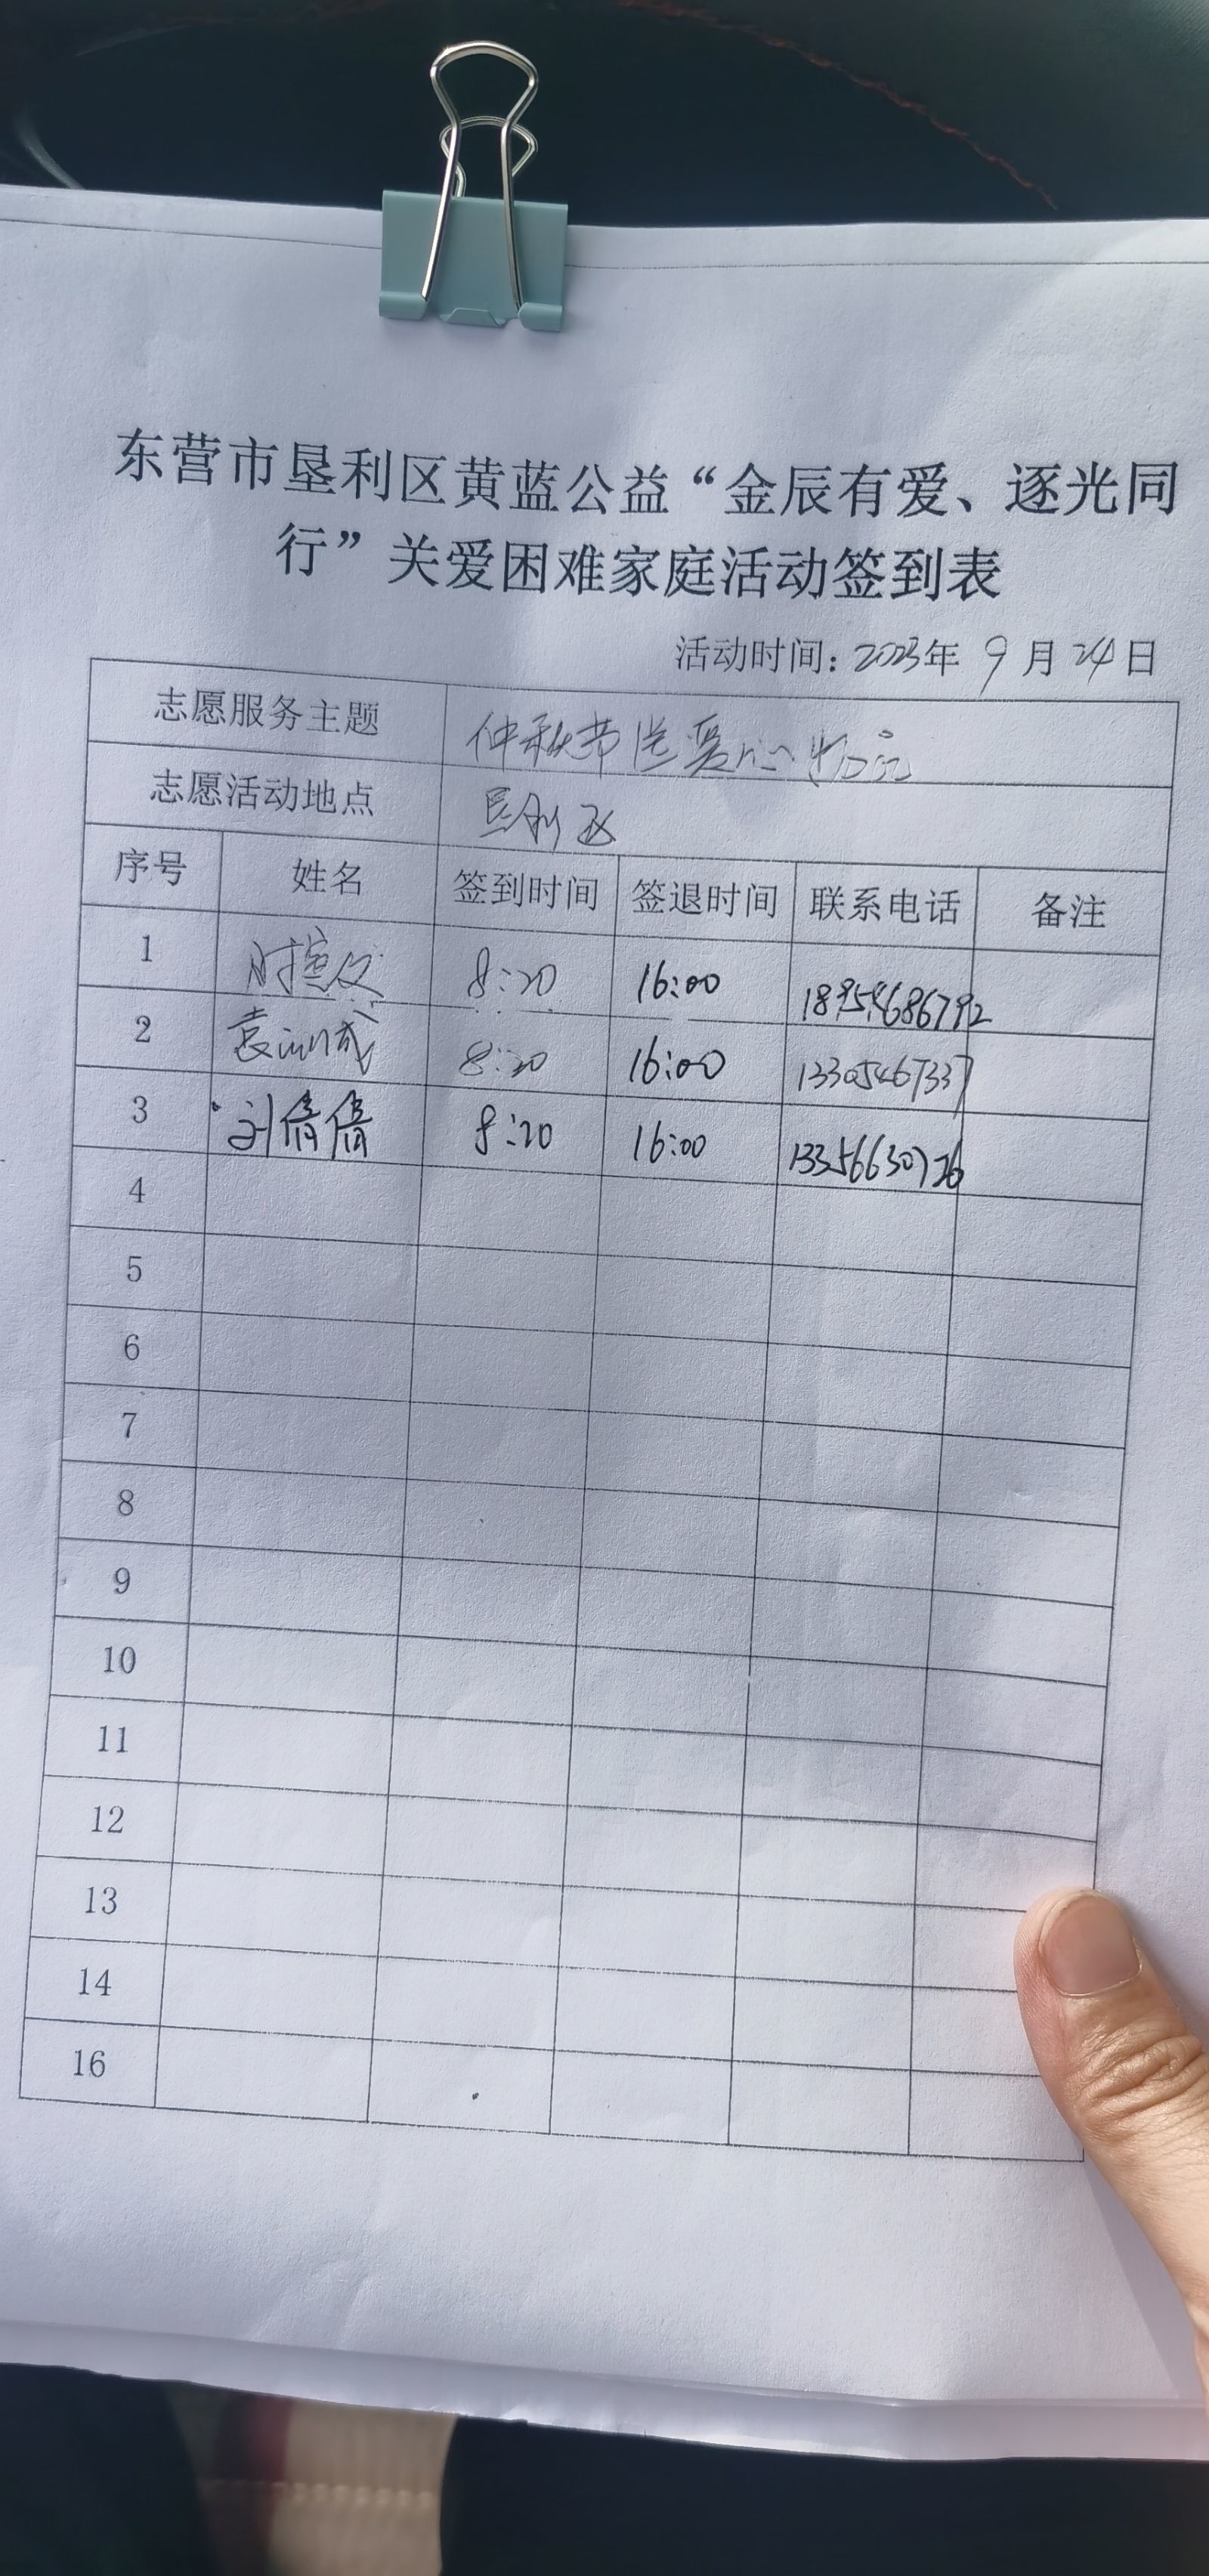 东营市垦利区黄蓝公益“金辰有爱、逐光同
行”关爱困难家庭活动签到表
活动时间：2023年 9月24日
志愿服务主题 仲秋节送爱心
志愿活动地点 垦利区
序号 姓名 签到时间 签退时间 联系电话 备注
1 8:20 16:00 18954686792
2 8:20 16:00 13305467337
3 刘倩倩 8:20 16:00 13356630726
4
5
6
7
8
9
10
11
12
13
14
16